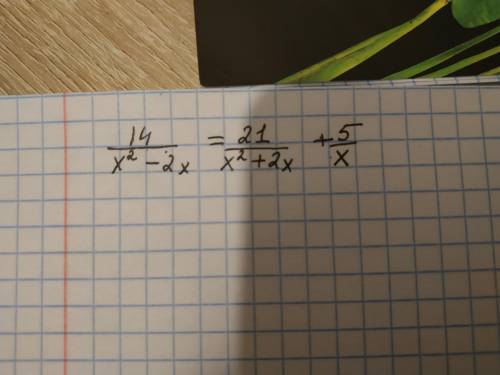 14/(x² - 2x) = 21/(x² + 2x) + 5/x